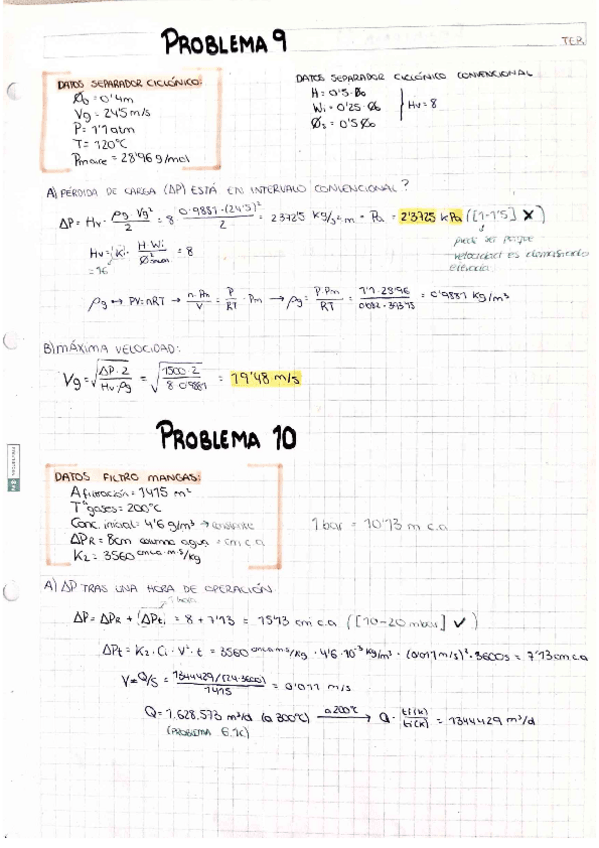 PROBLEMA 9
TER.
DATOS SEPARADOR CICLÓNICO:
Øo = 0'4m
Vg = 24'5 m/s
P = 1'1 atm
T = 120°C
Pm aire = 28'96 g/mol
DATOS SEPARADOR CICLÓNICO CONVENCIONAL
H = 0'5·Øo
Wi = 0'25·Øo
Øs = 0'5Øo
Hv = 8
A) PÉRDIDA DE CARGA (ΔP) ESTÁ EN INTERVALO CONVENCIONAL?
ΔP = Hv · ρg·Vg²/2 = 8 · 0'9881·(24'5)²/2 = 2372'5 kg/s²m = Pa = 2'3725 kPa ([1-1'5] X)
puede ser porque
velocidad es demasiado
elevada
Hv = Ki · H·Wi/Ø² = 8
= 16
ρg ↔ PV=nRT → n·Pm/V = P/RT · Pm → ρg = P·Pm/RT = 1'1·28'96/0'082·393'15 = 0'9881 kg/m³
B) MÁXIMA VELOCIDAD:
Vg = √(ΔP·2/Hv·ρg) = √(1500·2/8·0'9881) = 19'48 m/s
PROBLEMA 10
DATOS FILTRO MANGAS:
A filtración = 1415 m²
Tª gases = 200°C
Conc. inicial = 4'6 g/m³ → constante
ΔPR = 8cm columna agua = cm c.a
K2 = 3560 cm c.a·m·s/kg
1 bar = 10'13 m c.a
A) ΔP TRAS UNA HORA DE OPERACIÓN.
1 hora
ΔP = ΔPR + ΔPt = 8 + 7'13 = 15'13 cm c.a ([10-20 mbar] ✓)
ΔPt = K2·Ci·V²·t = 3560 cm c.a·m·s/kg · 4'6·10⁻³ kg/m³ · (0'011 m/s)² · 3600s = 7'13 cm c.a
V = Q/S = 1344429/(24·3600)/1415 = 0'011 m/s
Q = 1.628.573 m³/d (a 300°C) a 200°C → Q · tf(K)/ti(K) = 1344429 m³/d
(PROBLEMA 6.1c)